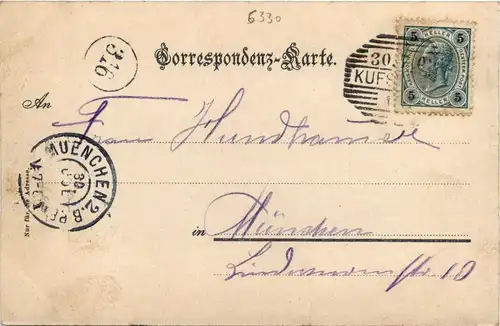 6330
316
Correspondenz-Karte.
5 HELLER 5
5 HELLER 5
30.
KUFS
An
Frau Hundhamer
MUENCHEN 2. B.P.
30
JUL
V. 7-
Nur für die Adresse.
in München
Lindwurmstr 10